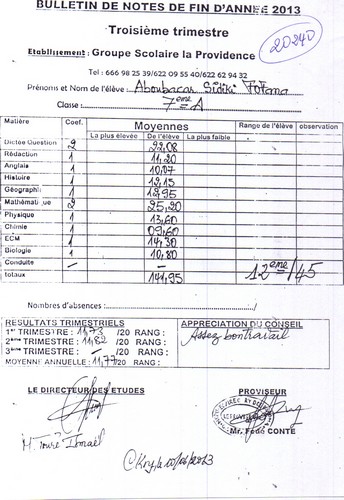 BULLETIN DE NOTES DE FIN D'ANNEE 2013
Troisième trimestre
20240
Etablissement : Groupe Scolaire la Providence
Tel : 666 98 25 39/622 09 55 40/622 62 94 32
Prénoms et Nom de l'élève : Aboubacar Sidiki Fofana
Classe : 7eme A
Matière Coef. Moyennes Range de l'élève observation
La plus élevée De l'élève La plus faible
Dictée Question 2 22,08
Rédaction 1 11,20
Anglais 1 10,07
Histoire 1 12,15
Géographie 1 12,95
Mathématique 2 25,20
Physique 1 13,60
Chimie 1 09,60
ECM 1 14,30
Biologie 1 10,80
Conduite – –
totaux 141,95 12eme/45
Nombres d'absences :/
RESULTATS TRIMESTRIELS
1er TRIMESTRE : 11,73 /20 RANG :
2ème TRIMESTRE : 11,82 /20 RANG :
3ème TRIMESTRE : – /20 RANG :
MOYENNE ANNUELLE : 11,77/20 RANG :
APPRECIATION DU CONSEIL
Assez bon travail
LE DIRECTEUR DES ETUDES
M. Touré Ismaël
PROVISEUR
Mr. Fodé CONTE
Cky, le 10/06/2013